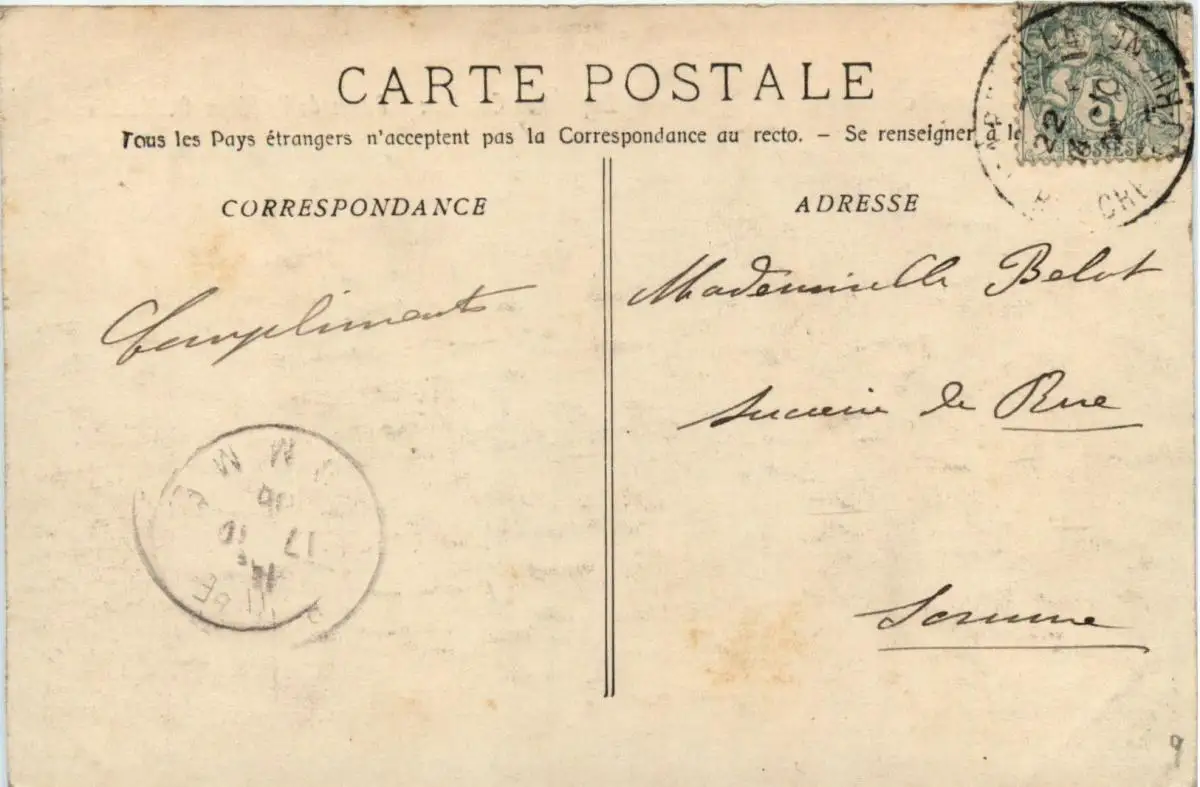 CARTE POSTALE
Tous les Pays étrangers n'acceptent pas la Correspondance au recto. — Se renseigner à la
CORRESPONDANCE
ADRESSE
Compliments
Mademoiselle Belot
Sucrerie de Rue
Somme
22
POSTES
17
9